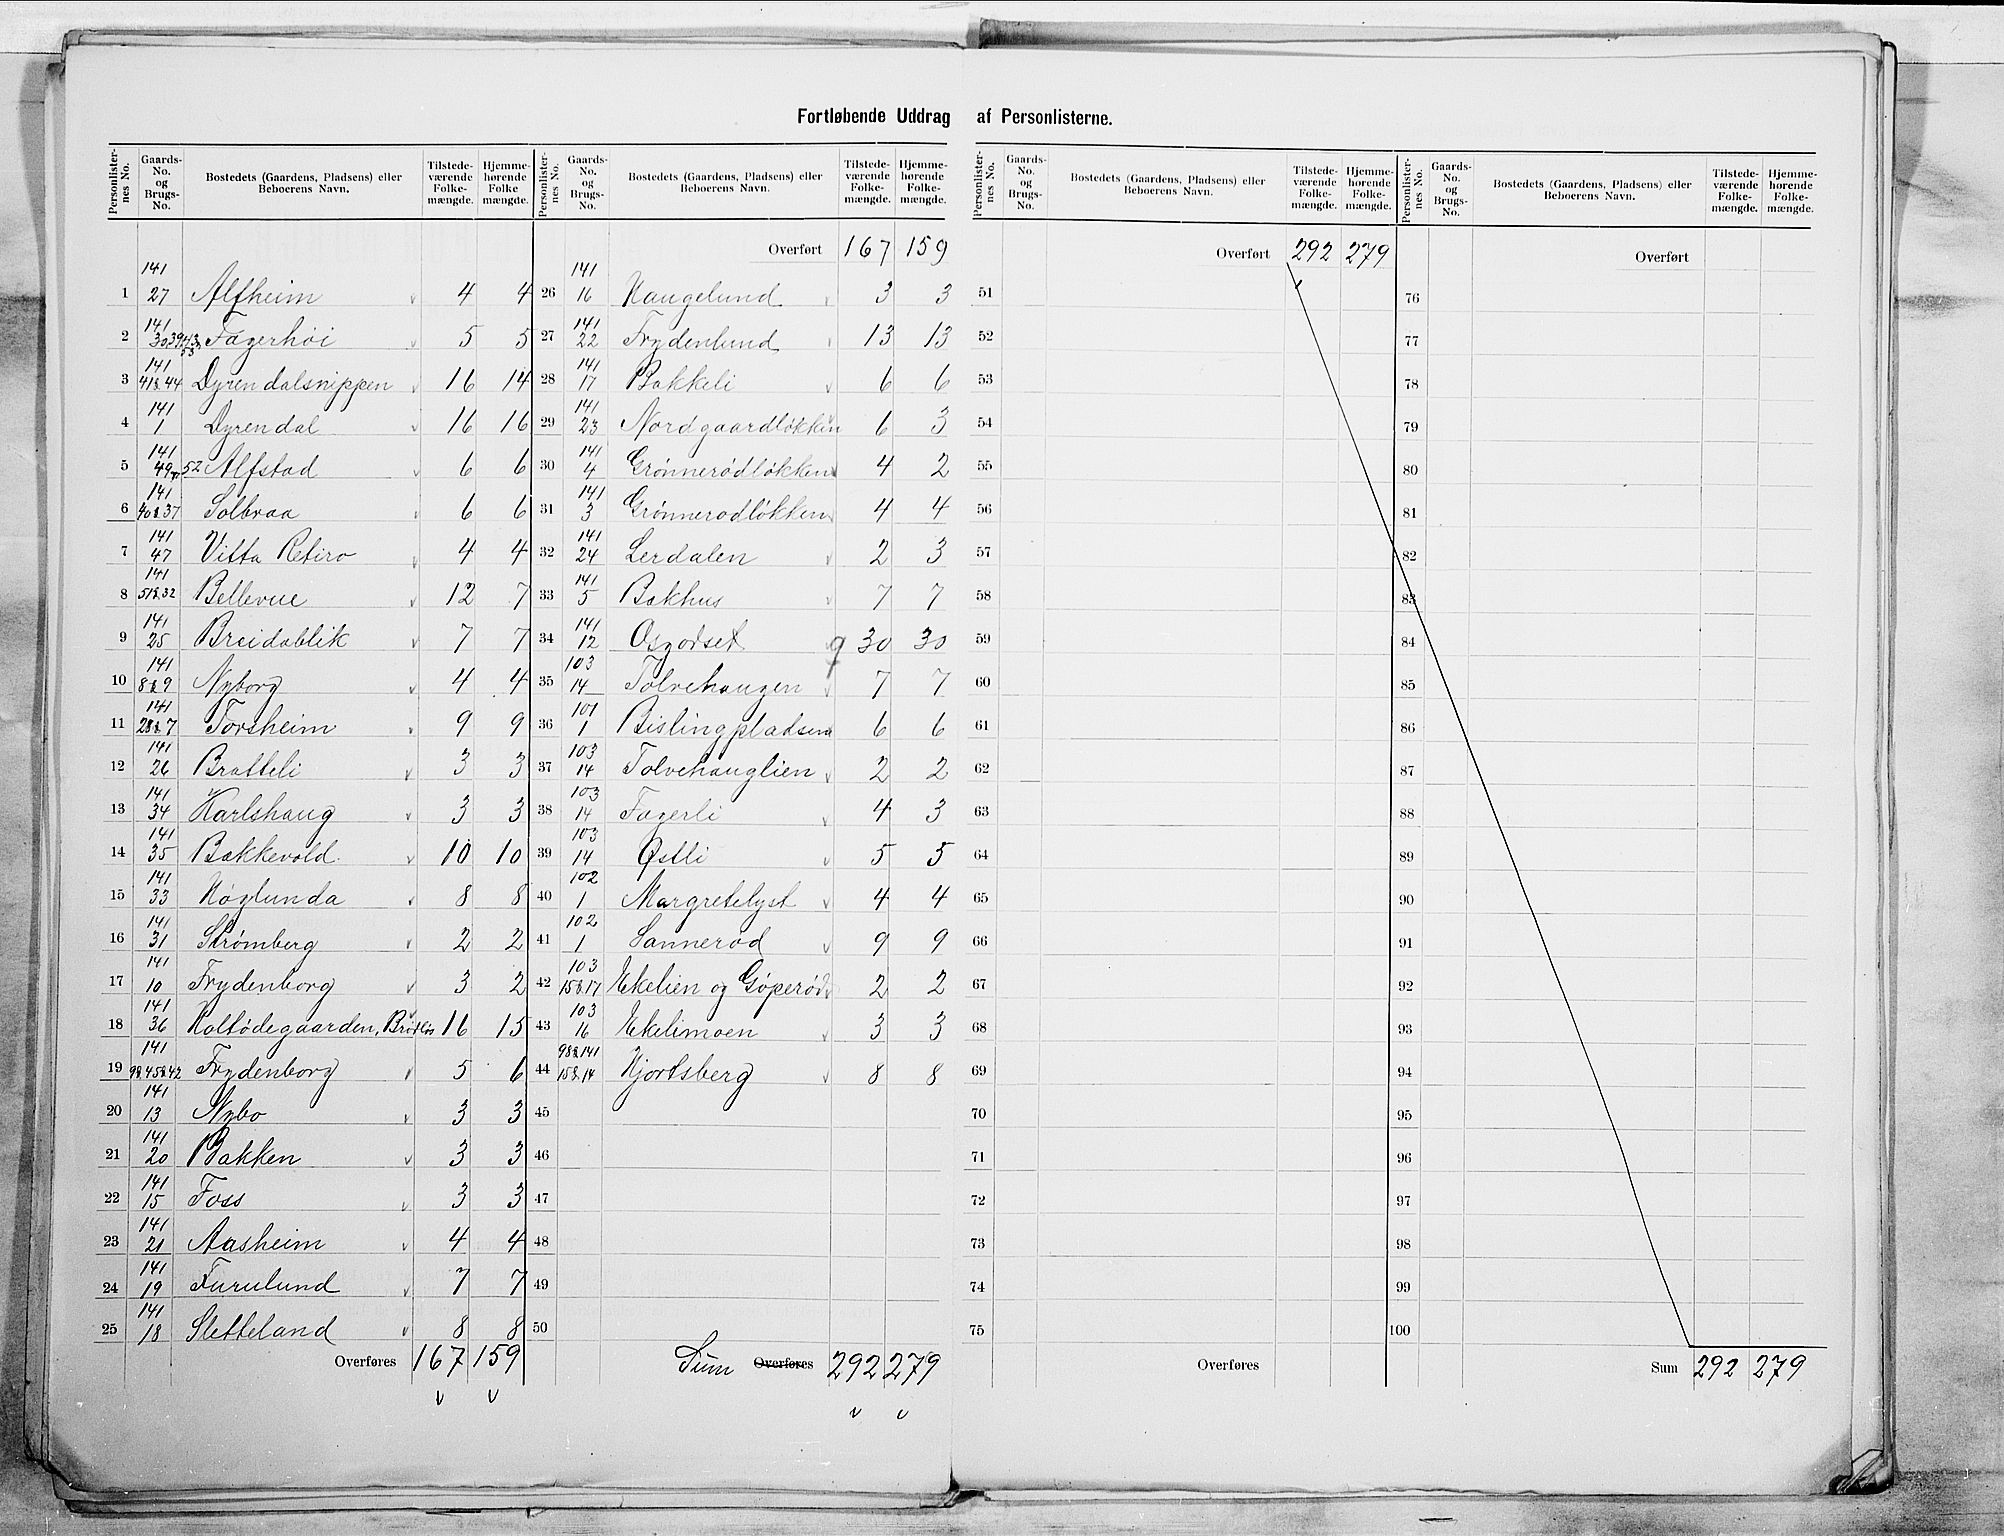 Fortløbende Uddrag af Personlisterne.
Personlisternes No. Gaards-No. og Brugs-No. Bostedets (Gaardens, Pladsens) eller Beboerens Navn. Tilstedeværende Folkemængde. Hjemmehørende Folkemængde.
1 141 27 Alfheim 4 4
2 141 Fagerhøi 5 5
3 141 41&44 Dyrendalsnippen 16 14
4 141 1 Dyrendal 16 16
5 141 49 52 Alfstad 6 6
6 141 40&37 Solbraa 6 6
7 141 47 Vitta Retiro 4 4
8 141 51&32 Bellevue 12 7
9 141 25 Breidablik 7 7
10 141 8&9 Nyborg 4 4
11 141 28&7 Forsheim 9 9
12 141 26 Bratteli 3 3
13 141 34 Karlshaug 3 3
14 141 35 Bakkevold 10 10
15 141 33 Høglunda 8 8
16 141 31 Strømberg 2 2
17 141 10 Frydenborg 3 2
18 141 36 Holtødegaarden, 16 15
19 141 9&45&42 Frydenborg 5 6
20 141 13 Nybo 3 3
21 141 20 Bakken 3 3
22 141 15 Foss 3 3
23 141 21 Aasheim 4 4
24 141 19 Furulund 7 7
25 141 18 Sletteland 8 8
Overføres 167 159
Overført 167 159
26 141 16 Haugelund 3 3
27 141 22 Frydenlund 13 13
28 141 17 Bakkeli 6 6
29 141 23 Nordgaardløkken 6 3
30 141 4 Grønnerødløkken 4 2
31 141 3 Grønnerødløkken 4 4
32 141 24 Lerdalen 2 3
33 141 5 Bakhus 7 7
34 141 12 Osgodset 30 30
35 103 14 Tolvehaugen 7 7
36 101 1 Bislingpladsen 6 6
37 103 14 Tolvehauglien 2 2
38 103 14 Fagerli 4 3
39 103 14 Østli 5 5
40 102 1 Margretelyst 4 4
41 102 1 Sannerød 9 9
42 103 15&17 Ekelien og Gøperød 2 2
43 103 16 Ekelimoen 3 3
44 98&141 15&14 Hjortsberg 8 8
45
46
47
48
49
50
Sum Overføres 292 279
Personlisternes No. Gaards-No. og Brugs-No. Bostedets (Gaardens, Pladsens) eller Beboerens Navn. Tilstedeværende Folkemængde. Hjemmehørende Folkemængde.
Overført 292 279
51
52
53
54
55
56
57
58
59
60
61
62
63
64
65
66
67
68
69
70
71
72
73
74
75
Overføres
Overført
76
77
78
79
80
81
82
83
84
85
86
87
88
89
90
91
92
93
94
95
96
97
98
99
100
Sum 292 279